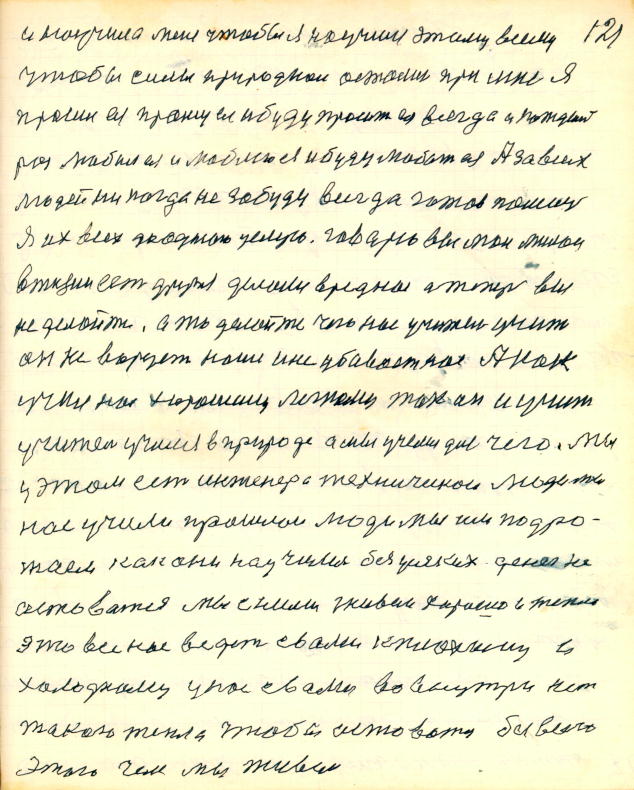 и научила меня чтобы я научил этому всему 121
чтобы силы природной остались при мне Я
просился прошусь и буду проситься всегда и каждый
раз любился и люблюся и буду любится А за всех
людей никогда не забуду всегда готов помощ
Я их всех до одного целую. говарю вы мои милои
в жизни есть друзья делали вредное а тепер вы
не делойти. а то делойте чего нас учител учит
он не варует ноши и не убивает нас А как
учил нас хорошему легкому так он и учит
учител учился в природе а мы учеми для чего. Мы
у этом есть инженера техническои люди
нас учили прошлои люди мы им подро-
жаем как они научился без усяких денег не
оставатся мы с ними живем харашо и тепло
это все нас ведет с вами к плохому и
холодному у нас с вами во внутри нет
такого тепла чтобы оставатся без всего
этого чем мы живем